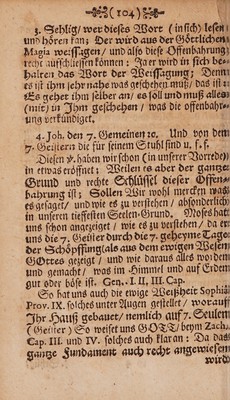 (104)
3. Sehlig/ wer dieses Wort (in sich) lesen
und hören kan; Der wird aus der Göttlichen
Magia weissagen/ und also diese Offenbahrung
recht aufschliessen können: Ja er wird in sich be-
halten das Wort der Weissagung; Denn
es ist ihm sehr nahe was geschehen muß/ das ist:
Es gehet ihn selber an/ es soll und muß alles
(mit) in Ihm geschehen/ was die offenbahr-
ung verkündiget.
4. Joh. den 7. Gemeinen ꝛc. Und von dem
7. Geistern die für seinem Stuhl sind u. s. f.
Diesen v. haben wir schon (in unserer Vorrede)
in etwas eröffnet: Weilen es aber der gantze
Grund und rechte Schlüssel dieser Offen-
bahrung ist; Sollen Wir wohl mercken was
es gesaget/ und wie es zu verstehen/ absonderlich
in unseren tieffesten Seelen-Grund. Moses hat
uns schon angezeiget/ wie es zu verstehen/ da er
uns die 7. Geister durch die 7. geheyme Tage
der Schöpffung (als aus dem ewigen Wesen
GOttes gezeiget/ und wie daraus alles worden
und gemacht/ was im Himmel und auf Erden
gut oder böse ist. Gen. I. II. III. Cap.
So hat uns auch die ewige Weißheit Sophia
Prov. IX. solches unter Augen gestellet/ worauf
Ihr Hauß gebauet/ nemlich auf 7. Seulem
(Geister) So weiset uns GOTT/ beym Zach.
Cap. III. und IV. solches auch klar an: Da das
gantze Fundament auch recht angewiesem
wird